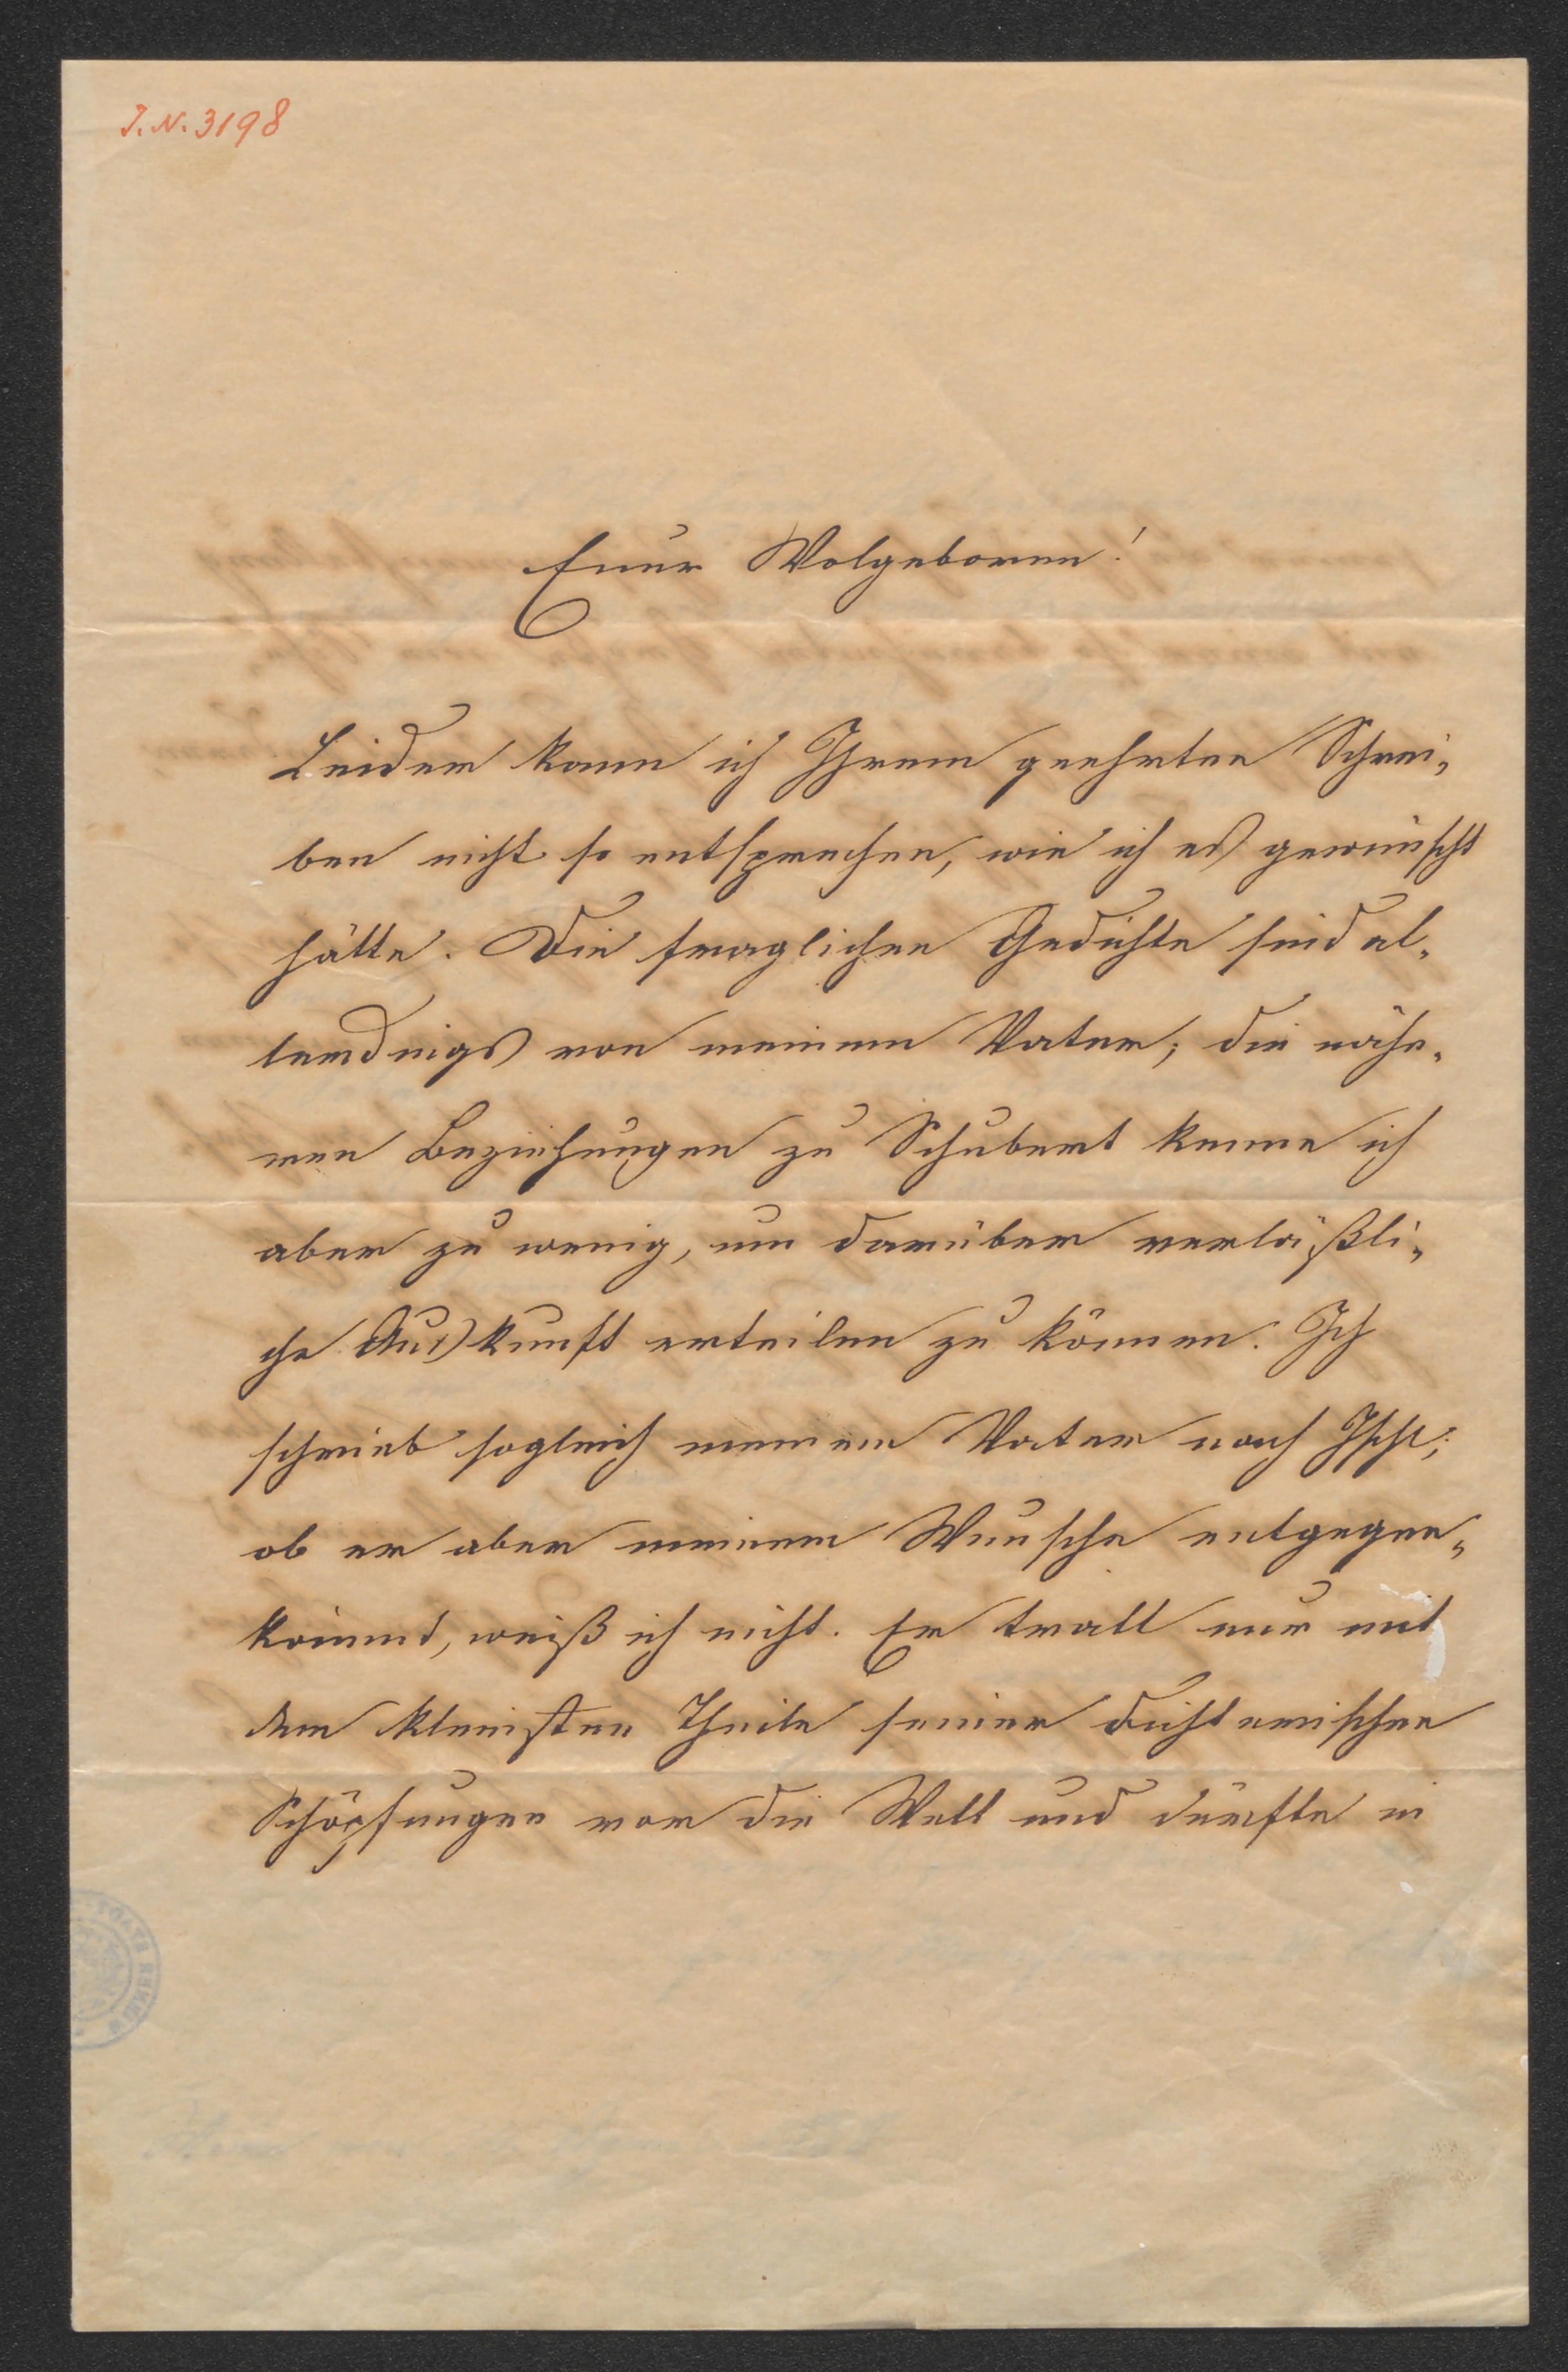 J.N. 3198
Euer Wolgeboren!
Leider kann ich Ihrem geehrten Schrei-
ben nicht so entsprechen, wie ich es gewünscht
hätte. Die fraglichen Gedichte sind al-
lerdings von meinem Vater; die nähe-
ren Beziehungen zu Schubert kenne ich
aber zu wenig, um darüber verläßli-
che Auskunft erteilen zu können. Ich
schrieb sogleich meinem Vater nach Ischl;
ob er aber meinem Wunsche entgegen-
kömmt, weiß ich nicht. Er tratt nur mit
dem kleinsten Theile seiner dichterischen
Schöpfungen vor die Welt und dürfte in